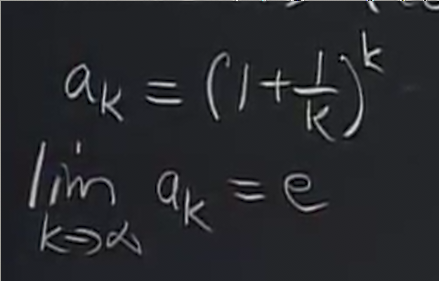 a_k = (1 + 1/k)^k
lim k→∞ a_k = e